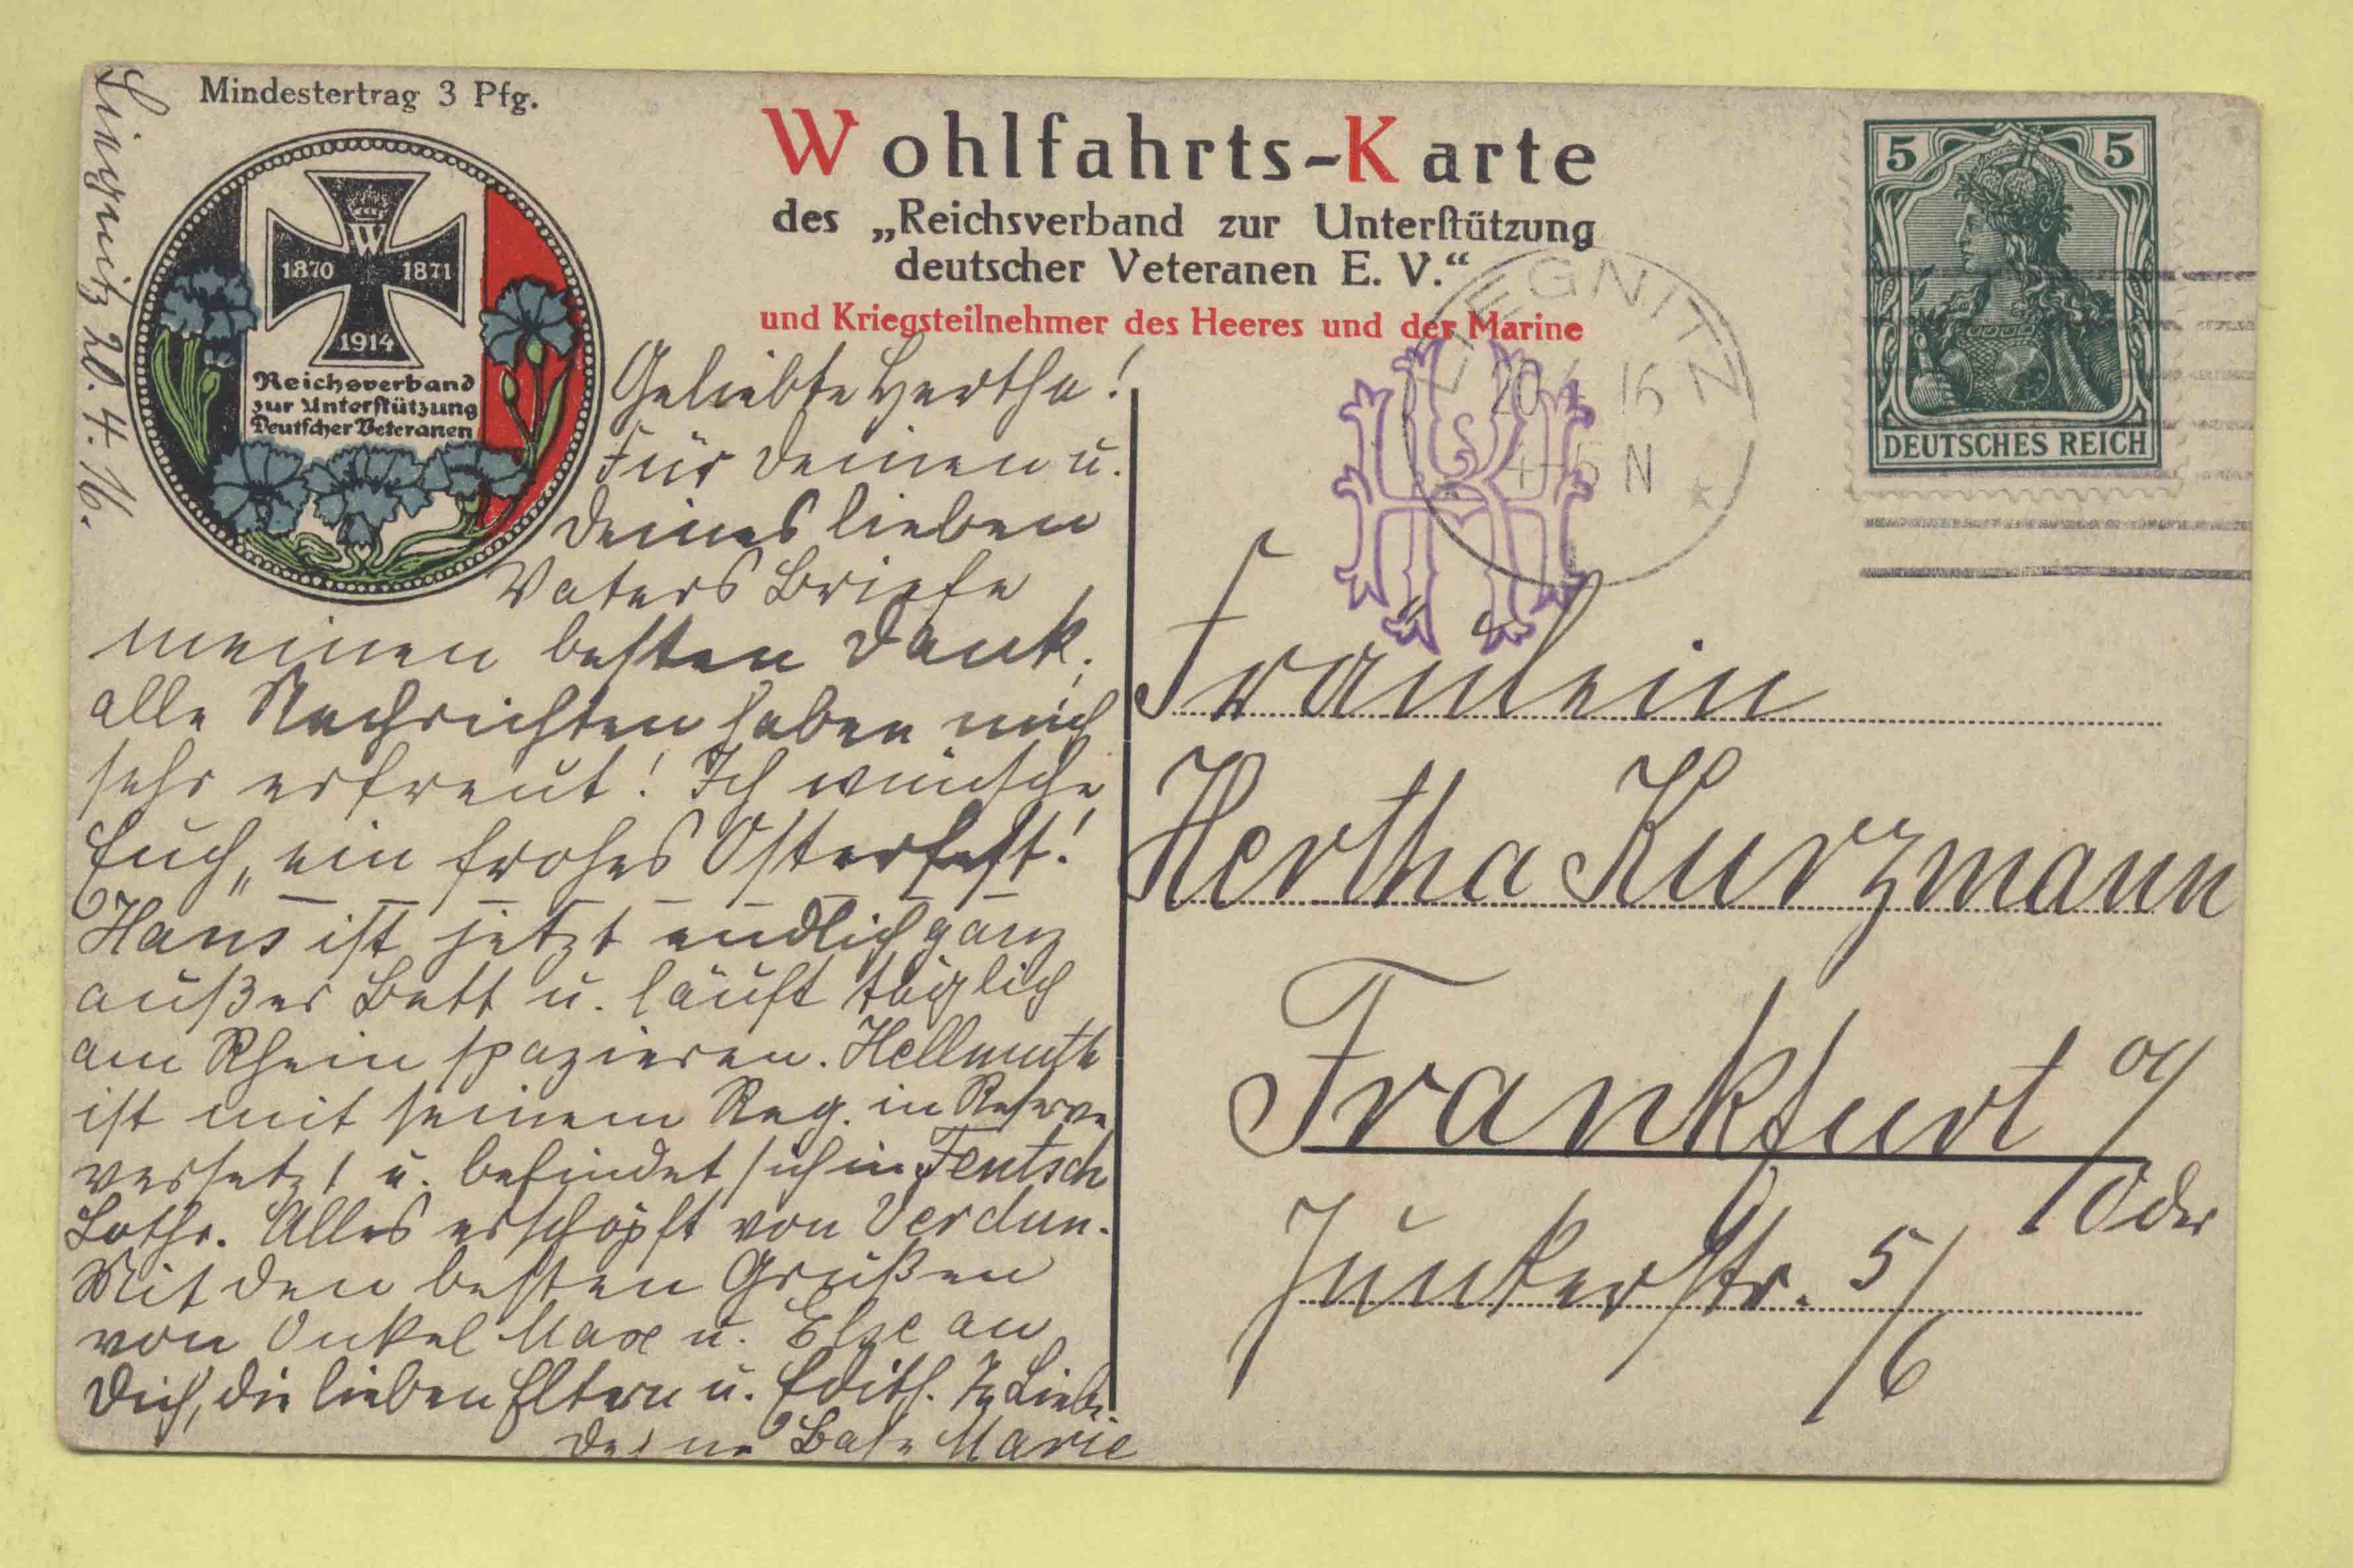 Liegnitz 20. 4. 16.
Mindestertrag 3 Pfg.
W
1870 1871
1914
Reichsverband
zur Unterstützung
Deutscher Veteranen
Wohlfahrts-Karte
des „Reichsverband zur Unterstützung
deutscher Veteranen E. V.“
und Kriegsteilnehmer des Heeres und der Marine
LIEGNITZ
20.4.16
4-5 N
5 5
DEUTSCHES REICH
Geliebte Hertha!
Für Deinen u.
Deines lieben
Vaters Briefe
meinen besten Dank;
alle Nachrichten haben mich
sehr erfreut! Ich wünsche
Euch „ein frohes Osterfest!
Hans ist jetzt endlich ganz
außer Bett u. läuft täglich
am Rhein spazieren. Hellmuth
ist mit seinem Reg. in Reserve
versetzt u. befindet sich in Fentsch
Lothr. Alles erschöpft von Verdun.
Mit den besten Grüßen
von Onkel Max u. Else an
Dich, die lieben Eltern u. Edith. In Liebe
Deine Base Marie
Fräulein
Hertha Kurzmann
Frankfurt a/
Oder
Junkerstr. 5/6